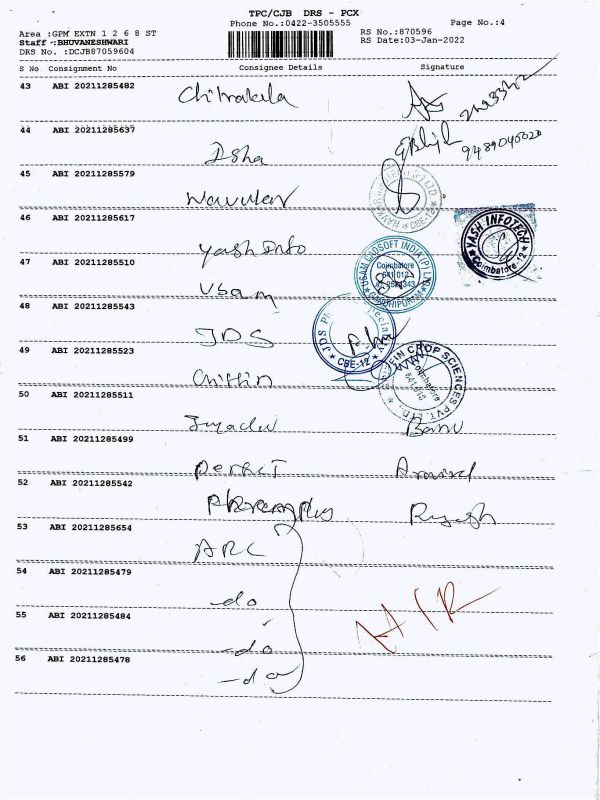 TPC/CJB DRS - PCX
Phone No.:0422-3505555
Page No.:4
Area :GPM EXTN 1 2 6 8 ST
Staff :BHUVANESHWARI
DRS No. :DCJB87059604
RS No.:870596
RS Date:03-Jan-2022
S No Consignment No Consignee Details Signature
43 ABI 20211285482
Chitrakala
44 ABI 20211285637
Isha
9489040020
45 ABI 20211285579
46 ABI 20211285617
Yash Info
YASH INFOTECH
Coimbatore-12
47 ABI 20211285510
Usam
Coimbatore
641 012
48 ABI 20211285543
JDS
JDS
CBE-12
49 ABI 20211285523
CROP SCIENCES PVT. LTD.
Coimbatore
50 ABI 20211285511
Banu
51 ABI 20211285499
Perfect
Aravind
52 ABI 20211285542
53 ABI 20211285654
ARC
54 ABI 20211285479
-do
55 ABI 20211285484
-do
56 ABI 20211285478
-do